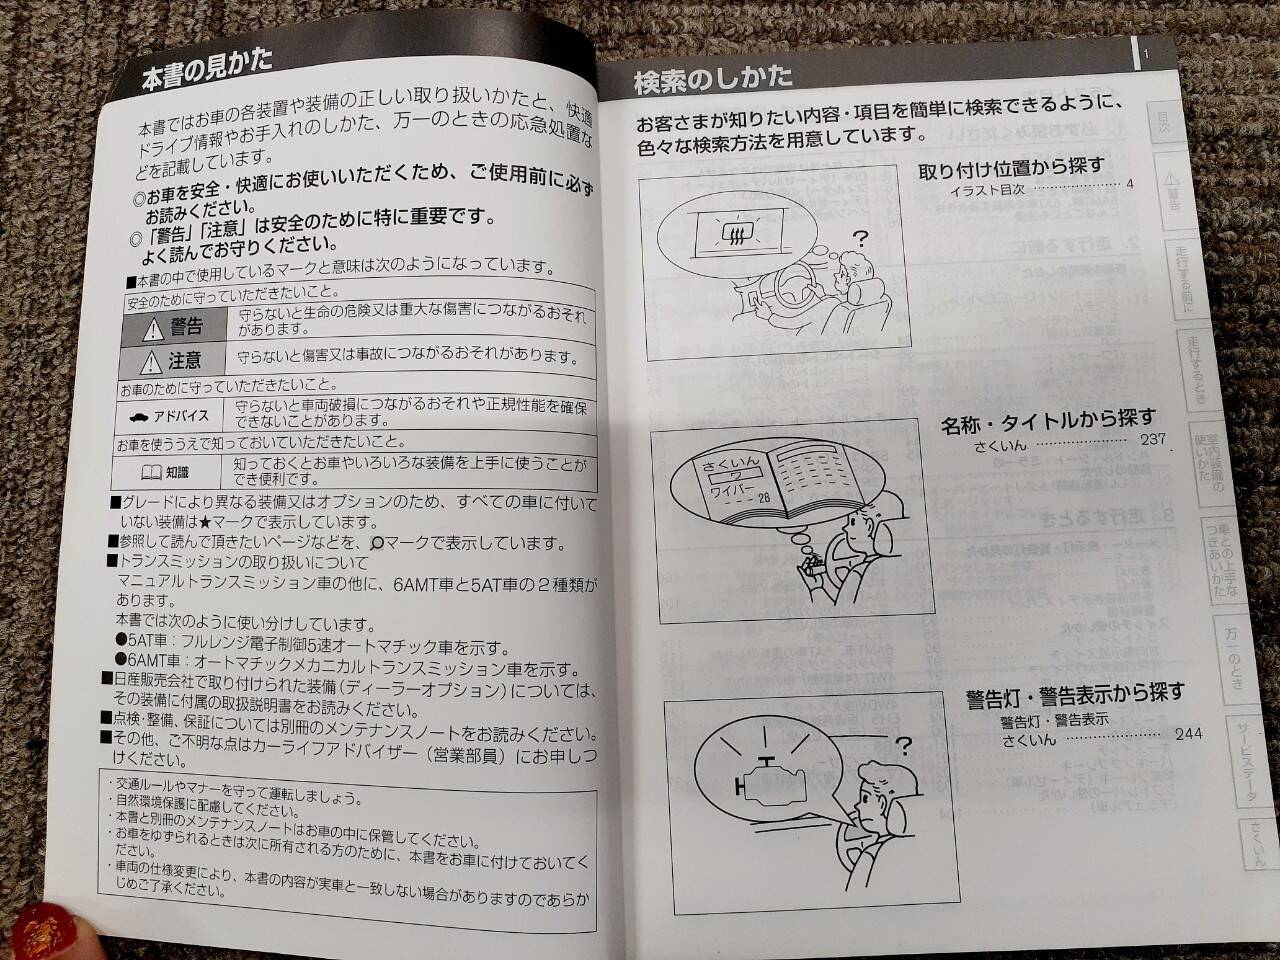 本書の見かた
本書ではお車の各装置や装備の正しい取り扱いかたと、快適
ドライブ情報やお手入れのしかた、万一のときの応急処置な
どを記載しています。
◎お車を安全・快適にお使いいただくため、ご使用前に必ず
お読みください。
◎「警告」「注意」は安全のために特に重要です。
よく読んでお守りください。
■本書の中で使用しているマークと意味は次のようになっています。
安全のために守っていただきたいこと。
警告
守らないと生命の危険又は重大な傷害につながるおそれ
があります。
注意
守らないと傷害又は事故につながるおそれがあります。
お車のために守っていただきたいこと。
アドバイス
守らないと車両破損につながるおそれや正規性能を確保
できないことがあります。
お車を使ううえで知っておいていただきたいこと。
知識
知っておくとお車やいろいろな装備を上手に使うことが
でき便利です。
■グレードにより異なる装備又はオプションのため、すべての車に付いて
いない装備は★マークで表示しています。
■参照して読んで頂きたいページなどを、マークで表示しています。
■トランスミッションの取り扱いについて
マニュアルトランスミッション車の他に、6AMT車と5AT車の2種類が
あります。
本書では次のように使い分けしています。
●5AT車：フルレンジ電子制御5速オートマチック車を示す。
●6AMT車：オートマチックメカニカルトランスミッション車を示す。
■日産販売会社で取り付けられた装備（ディーラーオプション）については、
その装備に付属の取扱説明書をお読みください。
■点検・整備、保証については別冊のメンテナンスノートをお読みください。
■その他、ご不明な点はカーライフアドバイザー（営業部員）にお申しつ
けください。
・交通ルールやマナーを守って運転しましょう。
・自然環境保護に配慮してください。
・本書と別冊のメンテナンスノートはお車の中に保管してください。
・お車をゆずられるときは次に所有される方のために、本書をお車に付けておいてく
ださい。
・車両の仕様変更により、本書の内容が実車と一致しない場合がありますのであらか
じめご了承ください。
検索のしかた
1
お客さまが知りたい内容・項目を簡単に検索できるように、
色々な検索方法を用意しています。
取り付け位置から探す
イラスト目次 ………………… 4
?
名称・タイトルから探す
さくいん ………………… 237
さくいん
ワ
ワイパー
28
警告灯・警告表示から探す
警告灯・警告表示
さくいん ………………… 244
?
目次
警告
走行する前に
走行するとき
室内装備の
使いかた
車との上手な
つきあいかた
万一のとき
サービスデータ
さくいん